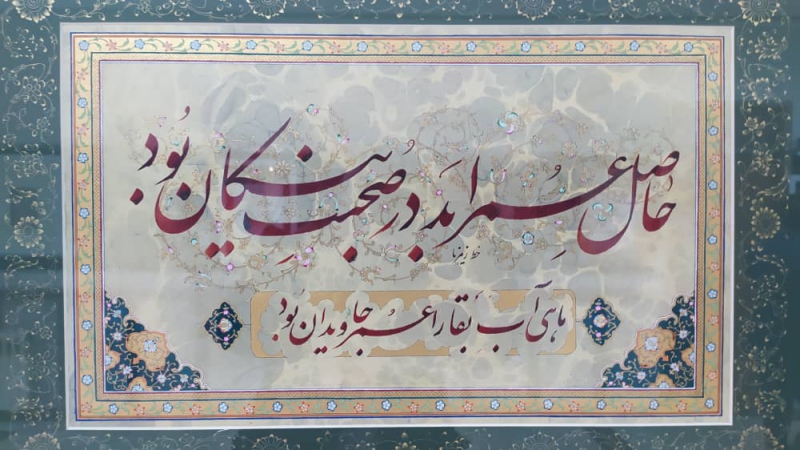 حاصل عمر ابد در صحبت نیکان بود
ماهی آب بقا را عمر جاویدان بود